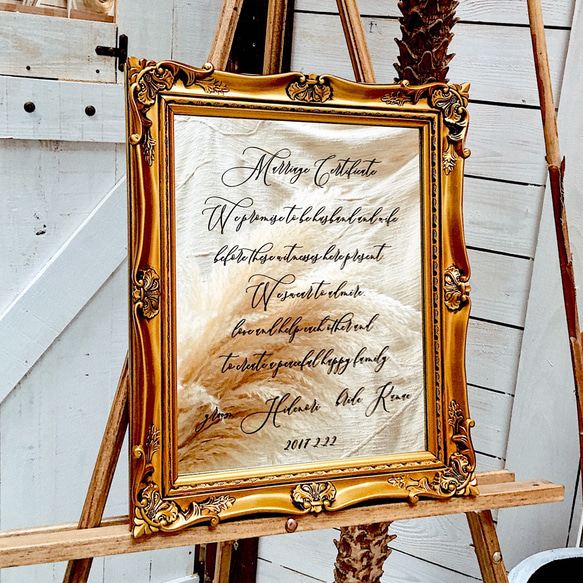 Marriage Certificate
We promise to be husband and wife
before these witnesses here present
We swear to admire
love and help each other and
to create a peaceful happy family
groom Hidenori bride Kanae
2017.2.22